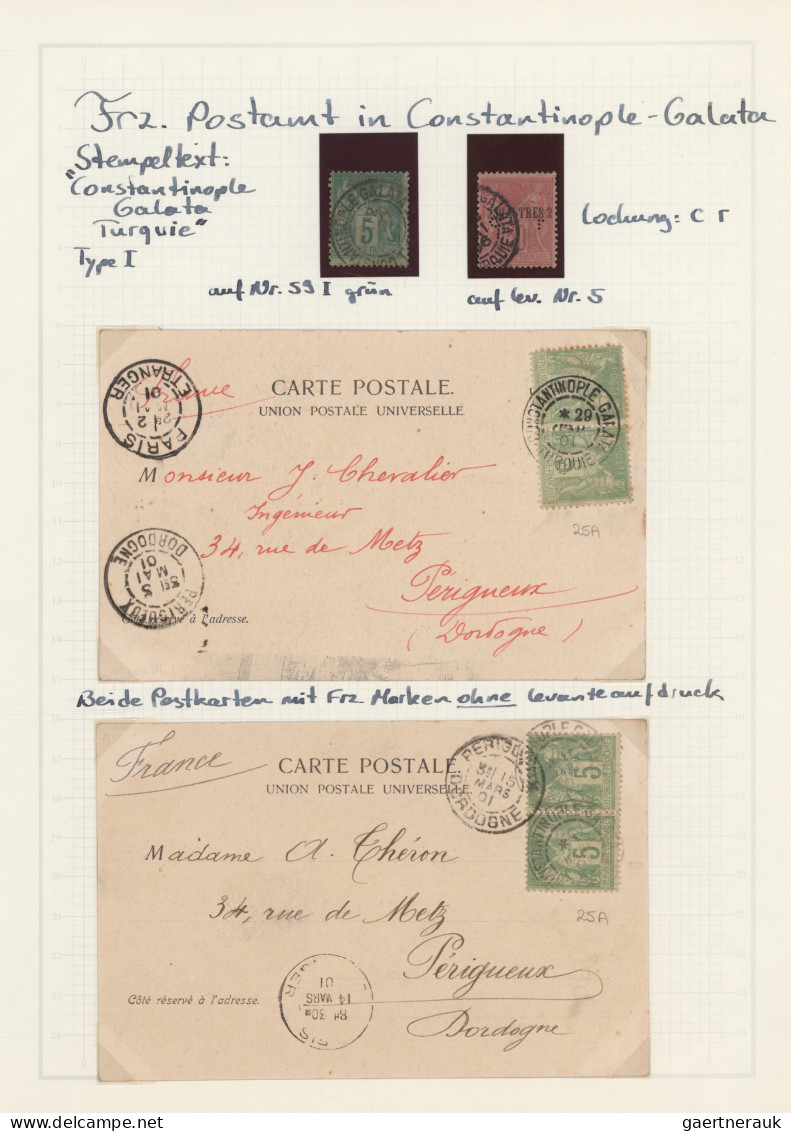 Frz. Postamt in Constantinople-Galata
"Stempeltext:
Constantinople
Galata
Turquie"
Type I
CONSTANTINOPLE GALATA
5
GALATA
TRES 2
RQUIE
Lochung: C T
auf Nr. 59 I grün
auf Lev. Nr. 5
PARIS
ETRANGER
01
France
CARTE POSTALE.
UNION POSTALE UNIVERSELLE
CONSTANTINOPLE GALATA
* 29
01
TURQUIE
25A
Monsieur J. Chevalier
Ingénieur
34, rue de Metz
Périgueux
(Dordogne)
PERIGUEUX
DORDOGNE
3
MAI
01
Côté réservé à l'adresse.
Beide Postkarten mit Frz Marken ohne Levanteaufdruck
France
CARTE POSTALE
UNION POSTALE UNIVERSELLE
PERIGUEUX
15
MARS
01
DORDOGNE
5
5
25A
Madame A. Théron
34, rue de Metz
Périgueux
Dordogne
Côté réservé à l'adresse.
8H 30M
14 MARS
01
gaertnerauk